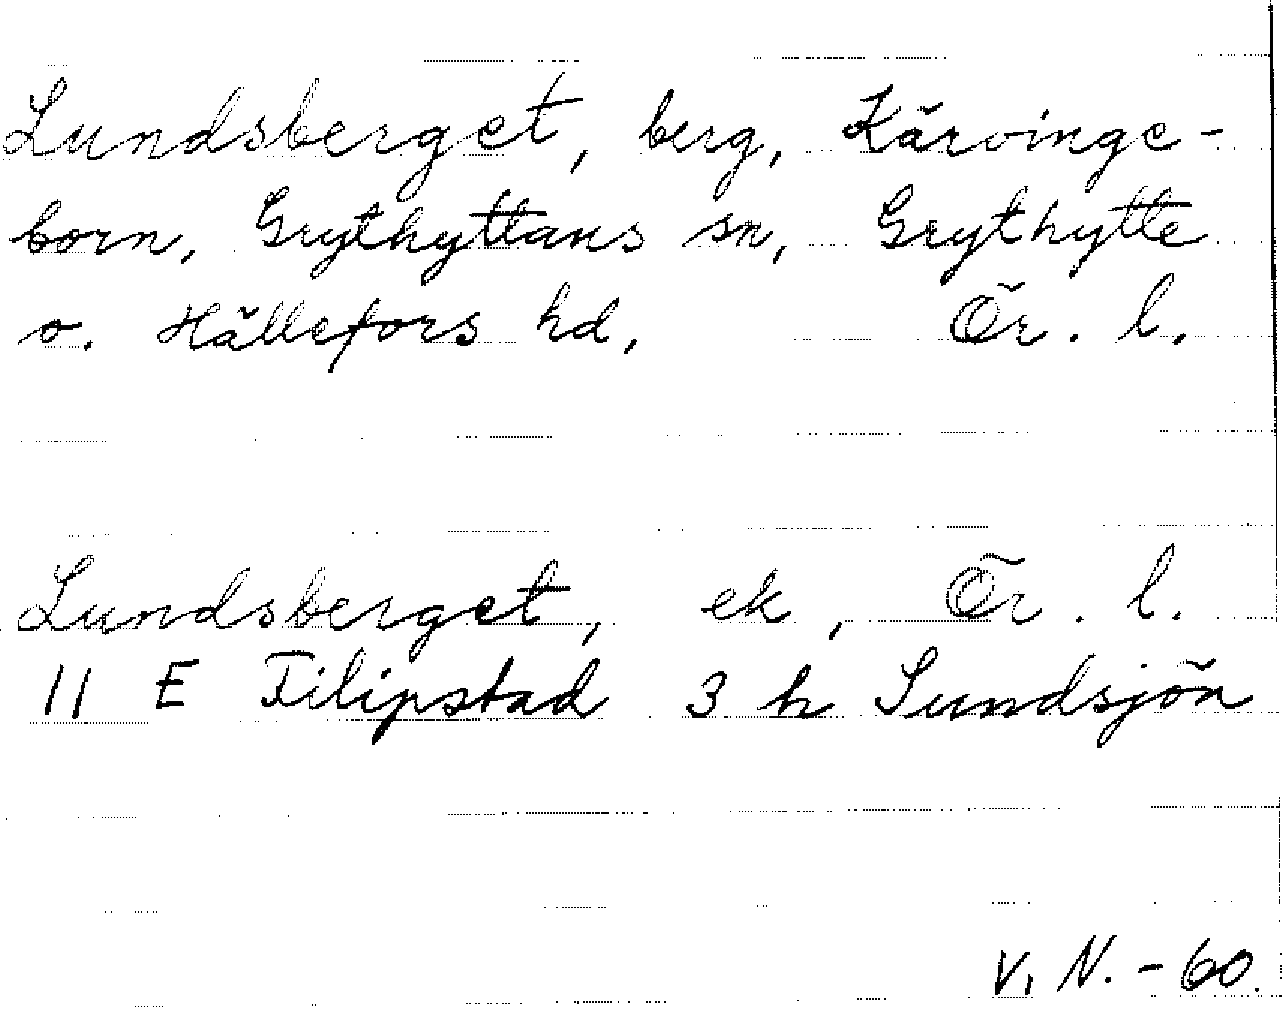 Lundsberget, berg, Kärvinge-
born, Grythyttans sn, Grythytte
o. Hällefors hd, Ör. l.
Lundsberget, ek, Ör. l.
11 E Filipstad 3 h Sundsjön
V. N. - 60.